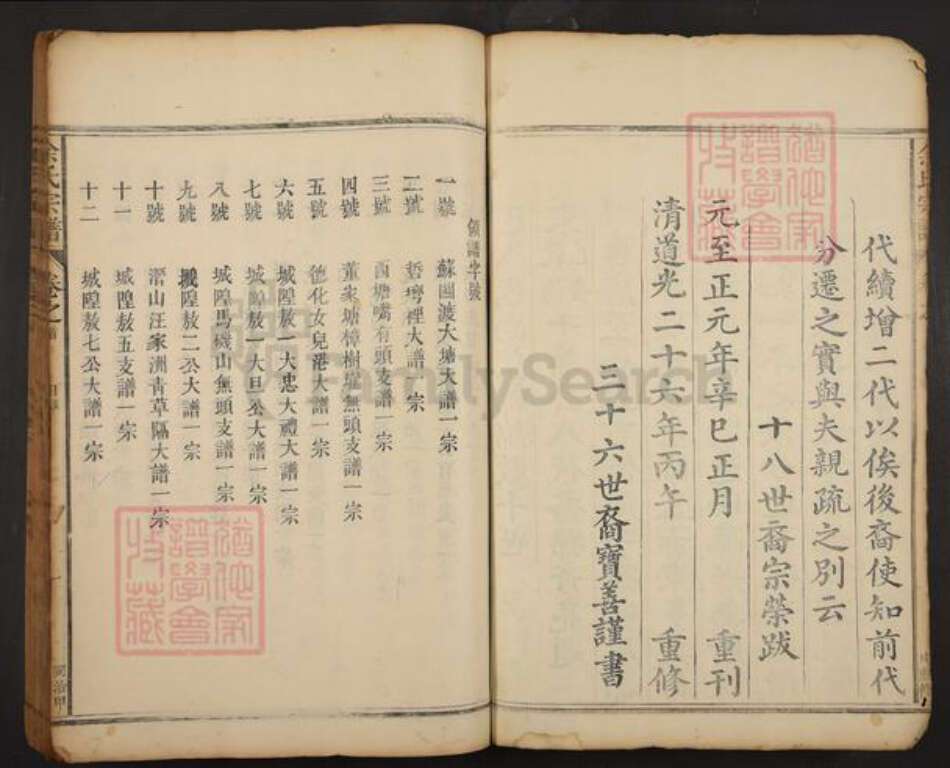 代續增二代以俟後裔使知前代
分遷之實與夫親疏之別云
十八世裔宗榮跋
元至正元年辛巳正月 重刊
清道光二十六年丙午 重修
三十六世裔寶善謹書
領譜字號
一號 蘇園渡大塘大譜一宗
二號 裡大譜一宗
三號 西塘嘴有頭支譜一宗
四號 董家塘樟樹壠無頭支譜一宗
五號 德化女兒港大譜一宗
六號 城隍敖一大忠大禮大譜一宗
七號 城隍敖一大旦公大譜一宗
八號 城隍馬磯山無頭支譜一宗
九號 城隍敖二公大譜一宗
十號 潛山汪家洲青草隔大譜一宗
十一 城隍敖五支譜一宗
十二 城隍敖七公大譜一宗
余氏宗譜 卷之首
猶他家譜學會特藏
猶他家譜學會特藏
FamilySearch